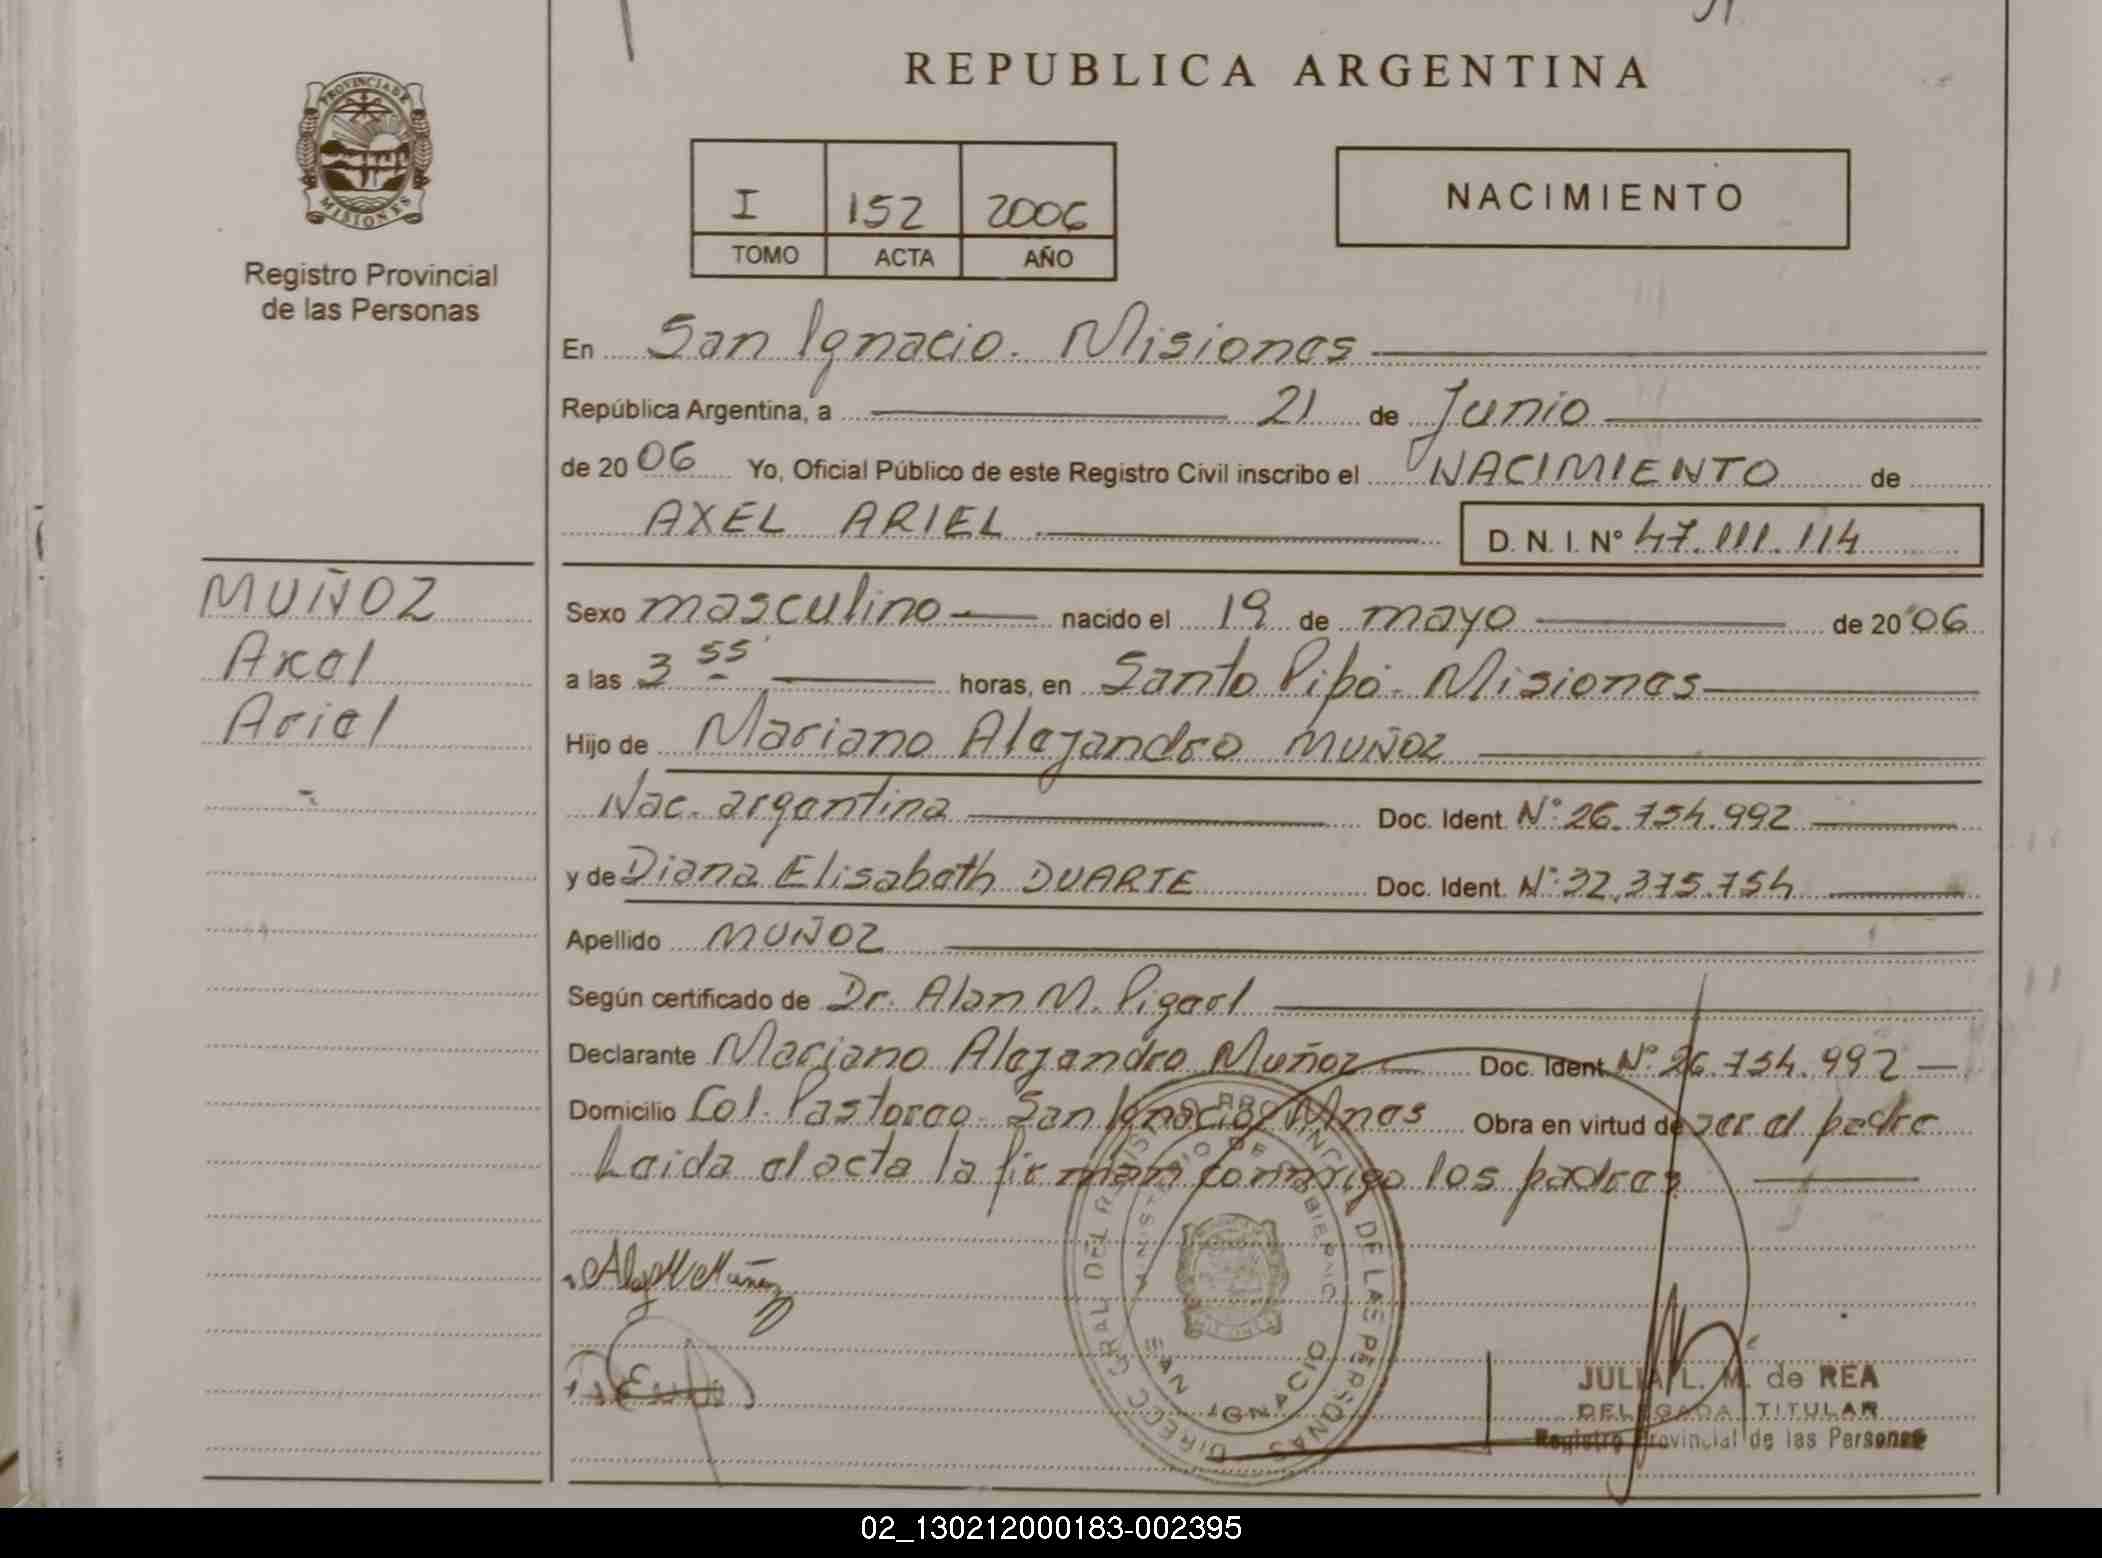 REPUBLICA ARGENTINA
PROVINCIA DE
MISIONES
Registro Provincial
de las Personas
I 152 2006
TOMO ACTA AÑO
NACIMIENTO
En San Ignacio. Misiones
República Argentina, a 21 de Junio
de 20 06 Yo, Oficial Público de este Registro Civil inscribo el NACIMIENTO de
AXEL ARIEL D. N. I. Nº 47.111.114
MUÑOZ
Axel
Ariel
Sexo masculino nacido el 19 de mayo de 20 06
a las 3 55' horas, en Santo Pipó. Misiones
Hijo de Mariano Alejandro MUÑOZ
Nac. argentina Doc. Ident. Nº: 26.754.992
y de Diana Elisabeth DUARTE Doc. Ident. Nº: 32.375.754
Apellido MUÑOZ
Según certificado de Dr. Alan M.
Declarante Mariano Alejandro Muñoz Doc. Ident. Nº 26.754.992
Domicilio Col. Pastoreo. San Ignacio. Mnes Obra en virtud de ser el padre
Leida el acta la firman conmigo los padres
DIRECC GRAL DEL REGISTRO PROVINCIAL DE LAS PERSONAS
MINISTERIO DE GOBIERNO
SAN IGNACIO
JULIA L. M. de REA
DELEGADA TITULAR
Registro Provincial de las Personas
02_130212000183-002395